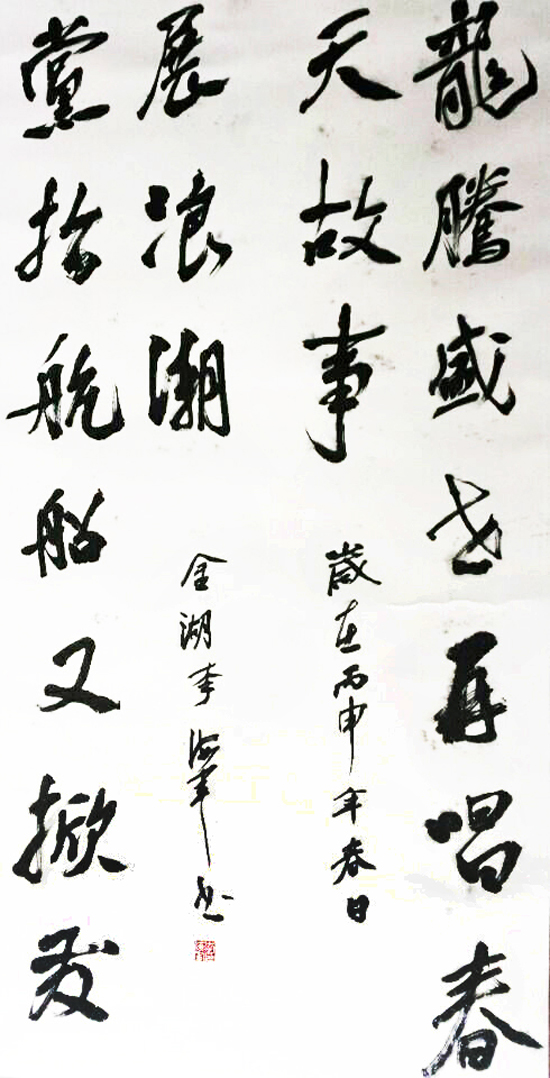 龍騰盛世再唱春
天故事
歲在丙申年春日
黨指航船又掀發
展浪潮
金湖李海书